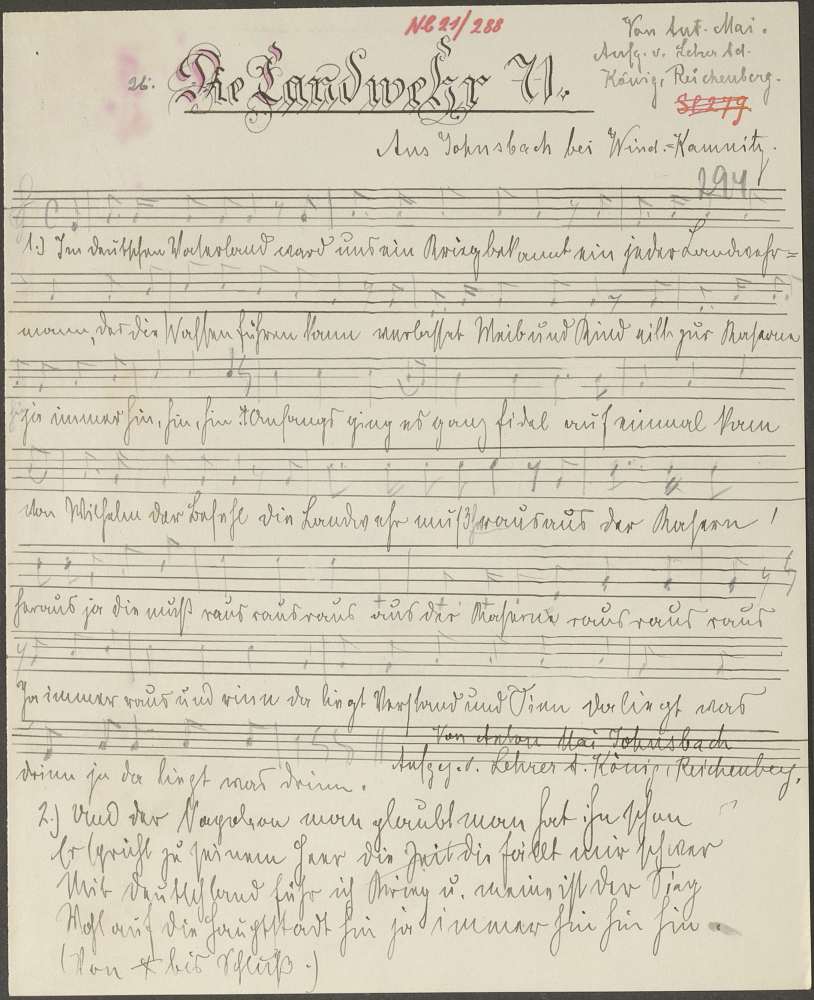 NL 21/288
Von Ant. Mai.
Aufg. v. Lehrer Ad.
König, Reichenberg.
26. Die Landwehr VI.
Aus Johnsbach bei Wind.=Kamnitz.
294
1.) Im deutschen Vaterland ward uns ein Krieg bekannt ein jeder Landwehr=
mann, der die Waffen führen kann verlasset Weib und Kind eilt zur Kaserne
ja immer hin, hin, hin Anfangs ging es ganz fidel auf einmal kam
von Wilhelm der Befehl die Landwehr muß heraus aus der Kasern!
heraus ja die muß raus raus raus aus der Kaserne raus raus raus
Ja immer raus und rinn da liegt Verstand und Sinn da liegt was
drinn ja da liegt was drinn.
Von Anton Mai Johnsbach
Aufgez. v. Lehrer A. König, Reichenberg.
2.) Und der Napoleon man glaubt man hat ihn schon
Er spricht zu seinem Heer die Zeit die fällt mir schwer
Mit Deutschland führ ich Krieg u. meine ist der Sieg
Wohl auf die Hauptstadt hin ja immer hin hin hin.
(Von * bis Schluß.)